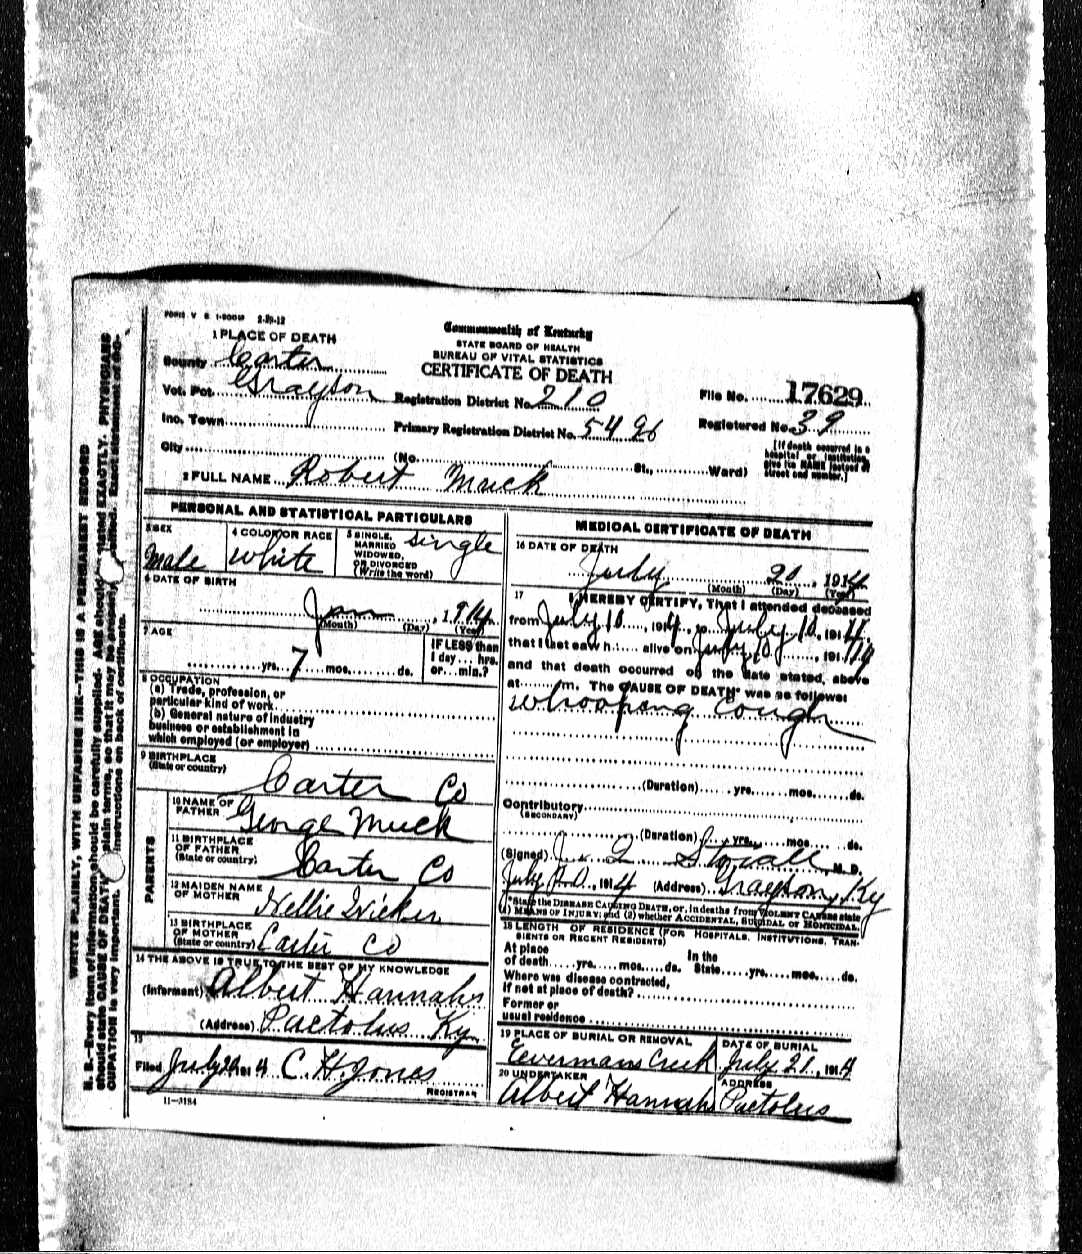 FORM V. S. 1-500M 2-29-12
Commonwealth of Kentucky
STATE BOARD OF HEALTH
BUREAU OF VITAL STATISTICS
CERTIFICATE OF DEATH
1 PLACE OF DEATH
County Carter
Vot. Pct. Grayson Registration District No. 210 File No. 17629
Inc. Town Primary Registration District No. 5496 Registered No. 39
City (No. St., Ward)
[If death occurred in a
hospital or institution,
give its NAME instead of
street and number.]
2 FULL NAME Robert Muck
PERSONAL AND STATISTICAL PARTICULARS
3 SEX
Male
4 COLOR OR RACE
White
5 SINGLE,
MARRIED
WIDOWED,
OR DIVORCED
(Write the word)
Single
6 DATE OF BIRTH
Jan, 1914
(Month) (Day) (Year)
7 AGE
yrs. 7 mos. ds.
IF LESS than
1 day... hrs.
or...min.?
8 OCCUPATION
(a) Trade, profession, or
particular kind of work
(b) General nature of industry
business or establishment in
which employed (or employer)
9 BIRTHPLACE
(State or country)
Carter Co
PARENTS
10 NAME OF
FATHER
George Muck
11 BIRTHPLACE
OF FATHER
(State or country)
Carter Co
12 MAIDEN NAME
OF MOTHER
Nellie Wicker
13 BIRTHPLACE
OF MOTHER
(State or country)
Carter Co
14 THE ABOVE IS TRUE TO THE BEST OF MY KNOWLEDGE
(Informant) Albert Hannahs
(Address) Pactolus Ky
15
Filed July 20 1914 C. H. Jones
REGISTRAR
11-3184
MEDICAL CERTIFICATE OF DEATH
16 DATE OF DEATH
July 20, 1914
(Month) (Day) (Year)
17 I HEREBY CERTIFY, That I attended deceased
from July 10, 1914, to July 10, 1914,
that I last saw h alive on July 10, 1914
and that death occurred on the date stated, above
at m. The CAUSE OF DEATH* was as follows:
Whoopeng Cough
(Duration) yrs. mos. ds.
Contributory
(SECONDARY)
(Duration) yrs. mos. ds.
(Signed) J. Q. Stovall M. D.
July 20, 1914 (Address) Grayson, Ky
*State the DISEASE CAUSING DEATH, or, in deaths from VIOLENT CAUSES state
(1) MEANS OF INJURY; and (2) whether ACCIDENTAL, SUICIDAL or HOMICIDAL
18 LENGTH OF RESIDENCE (FOR HOSPITALS, INSTITUTIONS, TRAN-
SIENTS OR RECENT RESIDENTS)
At place
of death yrs. mos. ds.
In the
State yrs. mos. ds.
Where was disease contracted,
if not at place of death?
Former or
usual residence
19 PLACE OF BURIAL OR REMOVAL
Eevermans Creek
DATE OF BURIAL
July 21, 1914
20 UNDERTAKER
Albert Hannahs
ADDRESS
Pactolus
N. B.—Every item of information should be carefully supplied. AGE should stated EXACTLY. PHYSICIANS
should state CAUSE OF DEATH plain terms, so that it may be properly
OCCUPATION is very important. instructions on back of certificate.
WRITE PLAINLY, WITH UNFADING INK—THIS IS A PERMANENT RECORD